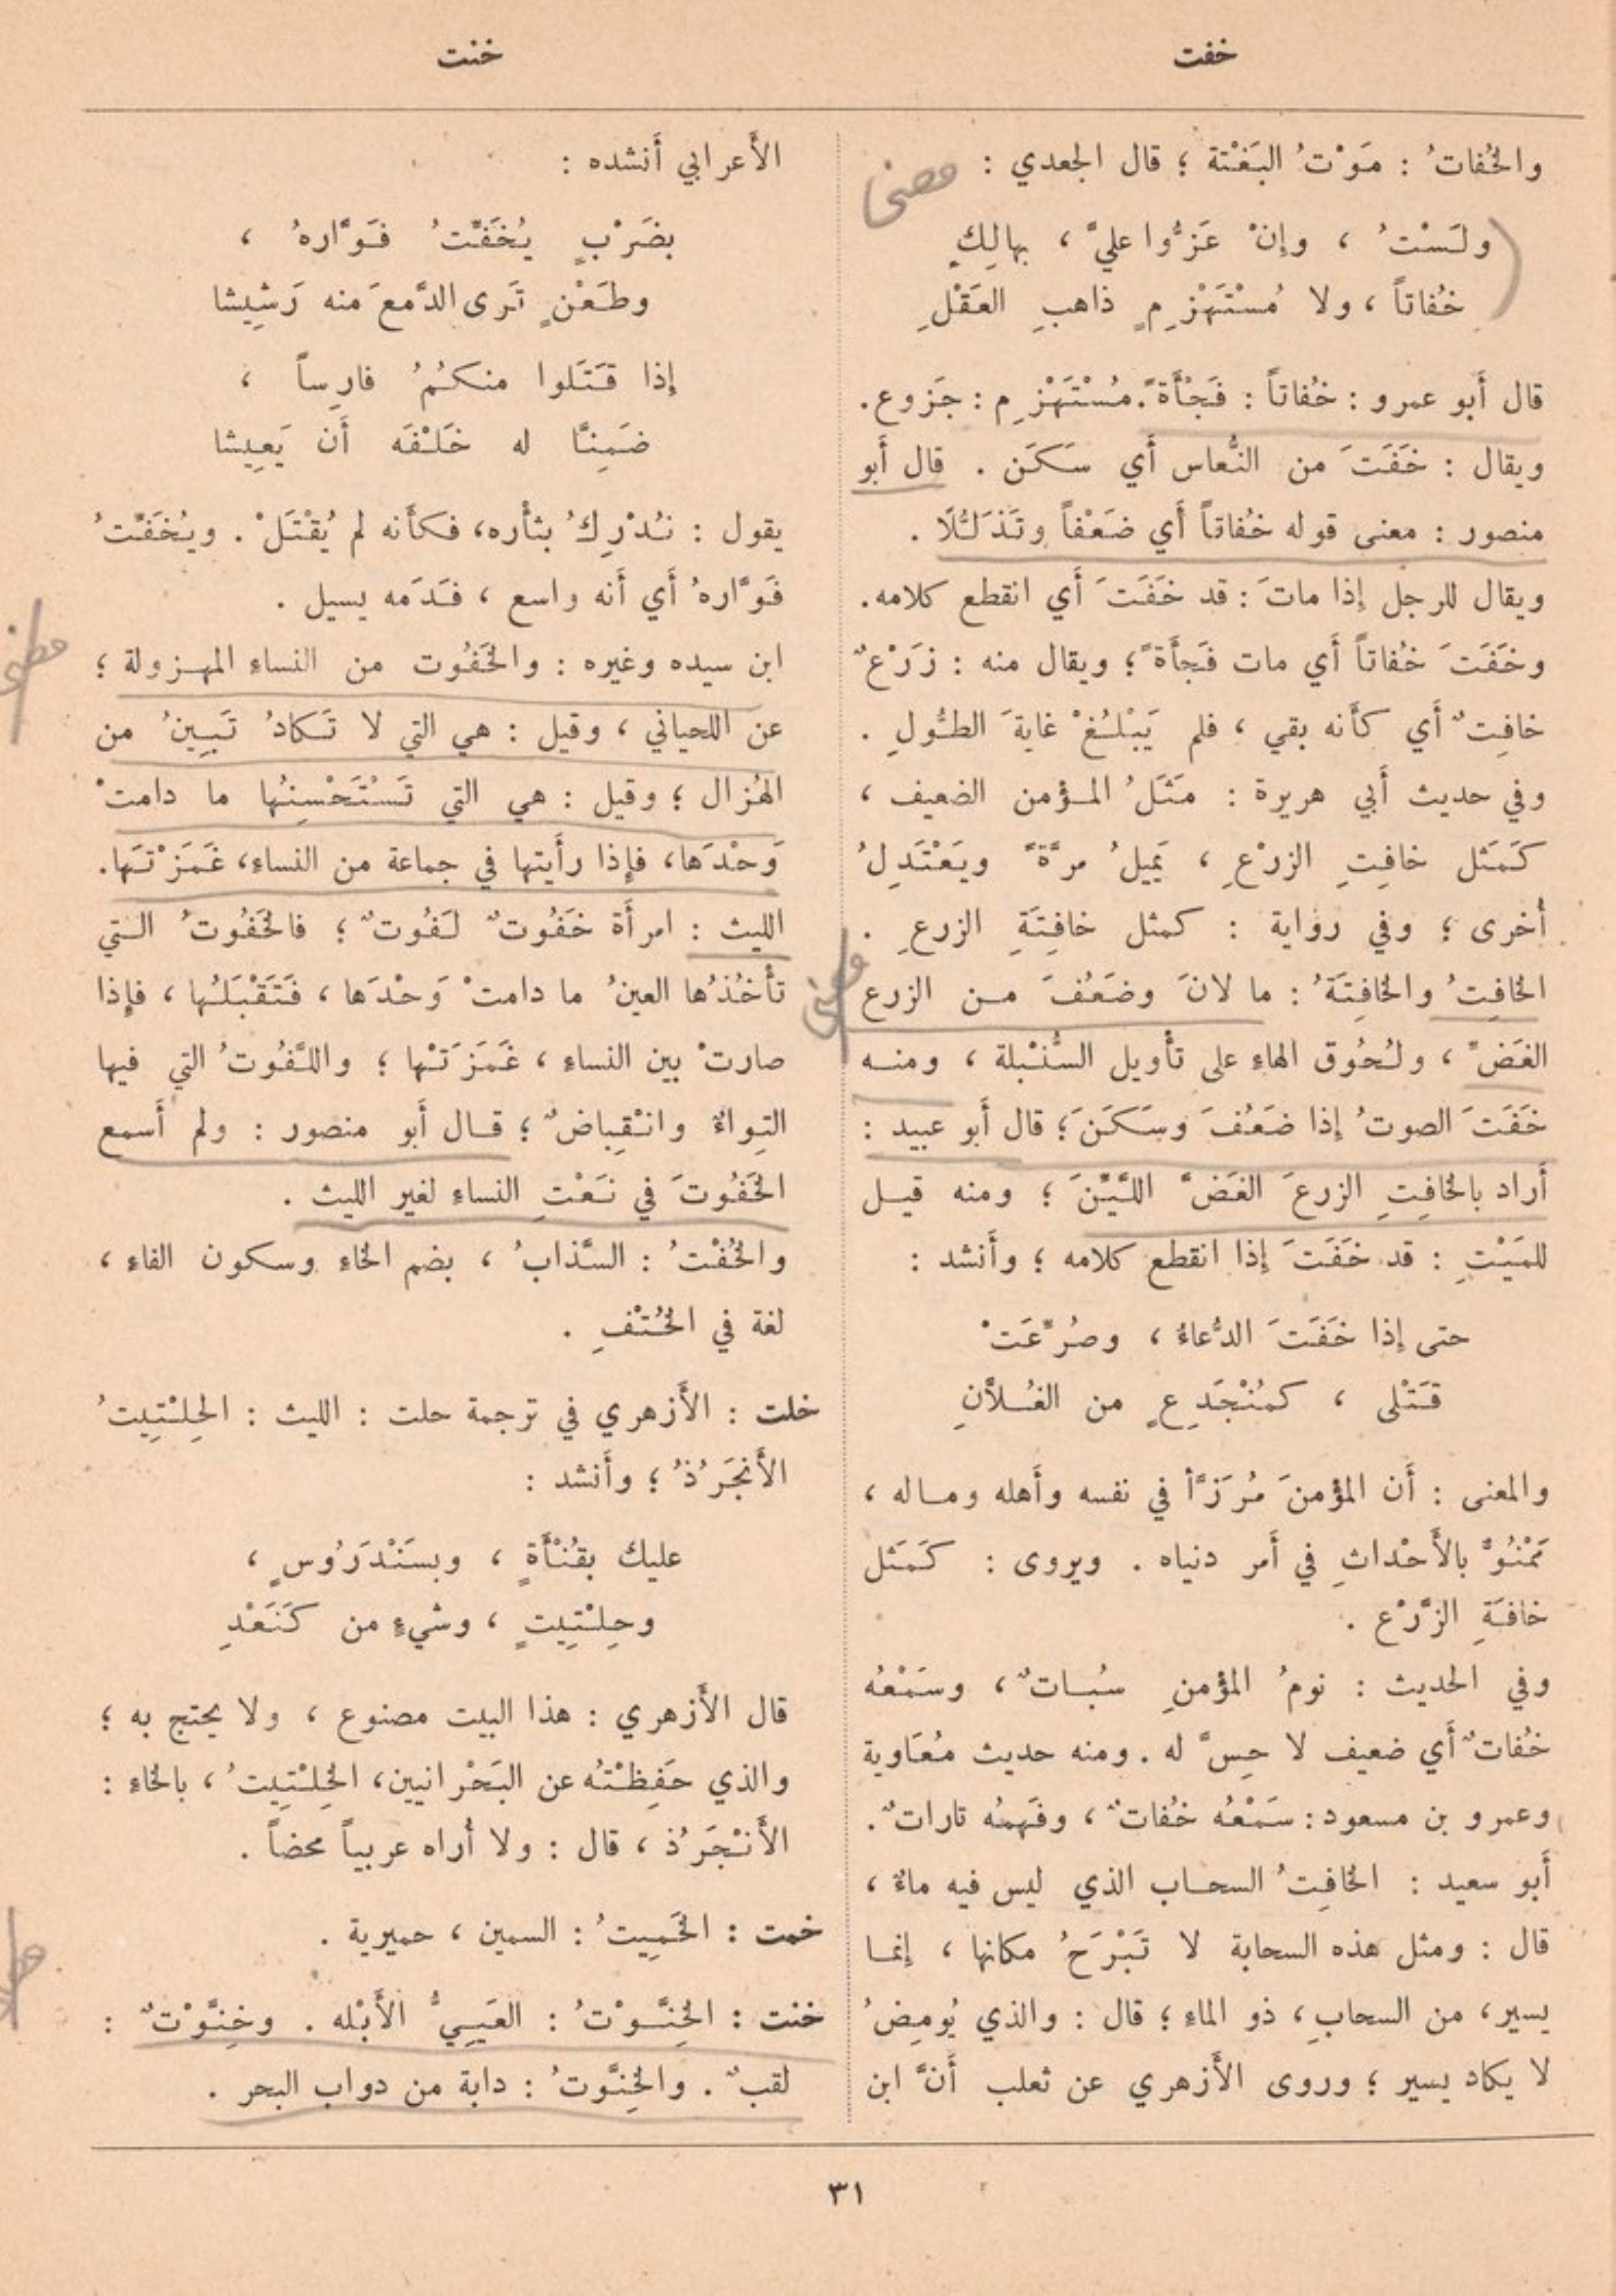 خفت
خنت
والخُفاتُ : مَوْتُ البَغْتة ؛ قال الجعدي :
ولَسْتُ ، وإنْ عَزُّوا عليَّ ، بهالِكٍ
خُفاتاً ، ولا مُسْتَهْزِمٍ ذاهبِ العَقْلِ
قال أَبو عمرو : خُفاتاً : فَجْأَةً. مُسْتَهْزِم : جَزوع.
ويقال : خَفَتَ من النُّعاس أَي سَكَن . قال أَبو
منصور : معنى قوله خُفاتاً أَي ضَعْفاً وتَذَلُّلًا .
ويقال للرجل إذا ماتَ : قد خَفَتَ أَي انقطع كلامه.
وخَفَتَ خُفاتاً أَي مات فَجأَةً ؛ ويقال منه : زَرْعٌ
خافِتٌ أَي كأَنه بقي ، فلم يَبْلُغْ غايةَ الطُّولِ .
وفي حديث أَبي هريرة : مَثَلُ المؤمن الضعيف ،
كَمَثل خافِتِ الزرْعِ ، يَمِيلُ مرَّةً ويَعْتَدِلُ
أُخرى ؛ وفي رواية : كمثل خافِتَةِ الزرعِ .
الخافِتُ والخافِتَةُ : ما لانَ وضَعُفَ من الزرع
الغَضِّ ، ولُحُوق الهاءِ على تأْويل السُّنْبلة ، ومنه
خَفَتَ الصوتُ إذا ضَعُفَ وسَكَنَ ؛ قال أَبو عبيد :
أَراد بالخافِتِ الزرعَ الغَضَّ اللَّيِّنَ ؛ ومنه قيل
للمَيْتِ : قد خَفَتَ إذا انقطع كلامه ؛ وأَنشد :
حتى إذا خَفَتَ الدُّعاءُ ، وصُرِّعَتْ
قَتْلى ، كمُنْجَدِعٍ من الغُلَّانِ
والمعنى : أَن المؤمنَ مُرَزَّأ في نفسه وأَهله وماله ،
مَمْنُوٌّ بالأَحْداثِ في أَمر دنياه . ويروى : كَمَثل
خافَةِ الزَّرْع .
وفي الحديث : نومُ المؤمنِ سُباتٌ ، وسَمْعُه
خُفاتٌ أَي ضعيف لا حِسَّ له . ومنه حديث مُعَاوية
وعمرو بن مسعود : سَمْعُه خُفاتٌ ، وفَهمُه تاراتٌ.
أَبو سعيد : الخافِتُ السحاب الذي ليس فيه ماءٌ ،
قال : ومثل هذه السحابة لا تَبْرَحُ مكانها ، إنما
يسير، من السحابِ ، ذو الماءِ ؛ قال : والذي يُومِضُ
لا يكاد يسير ؛ وروى الأَزهري عن ثعلب أَنَّ ابن
الأَعرابي أَنشده :
بضَرْبٍ يُخَفِّتُ فَوَّارهُ ،
وطَعْنٍ تَرى الدَّمعَ منه رَشِيشا
إذا قَتَلوا منكُمُ فارِساً ،
ضَمِنَّا له خَلْفَه أَن يَعِيشا
يقول : نُدْرِكُ بثأْره، فكأَنه لم يُقْتَلْ . ويُخَفِّتُ
فَوَّارهُ أَي أَنه واسع ، فَدَمَه يسيل .
ابن سيده وغيره : والخَفُوت من النساءِ المهزولة ؛
عن اللحياني ، وقيل : هي التي لا تَكادُ تَبِينُ من
الهُزال ؛ وقيل : هي التي تَسْتَحْسِنُها ما دامتْ
وَحْدَها، فإِذا رأَيتها في جماعة من النساءِ، غَمَزْتَها.
الليث : امرأَة خَفُوتٌ لَفُوتٌ ؛ فالخَفُوتُ التي
تأْخُذُها العينُ ما دامتْ وَحْدَها ، فَتَقْبَلُها ، فإِذا
صارتْ بين النساءِ ، غَمَزَتْها ؛ واللَّفُوتُ التي فيها
التِواءٌ وانْقِباضٌ ؛ قال أَبو منصور : ولم أَسمع
الخَفُوتَ في نَعْتِ النساءِ لغير الليث .
والخُفْتُ : السَّذابُ ، بضم الخاءِ وسكون الفاءِ ،
لغة في الخُتْفِ .
خلت : الأَزهري في ترجمة حلت : الليث : الحِلْتِيتُ
الأَنجَرُذُ ؛ وأَنشد :
عليك بقُنْأَةٍ ، وبسَنْدَرُوسٍ ،
وحِلْتِيتٍ ، وشيءٍ من كَنَعْدِ
قال الأَزهري : هذا البيت مصنوع ، ولا يحتج به ؛
والذي حَفِظْتُه عن البَحْرانيين، الخِلْتِيتُ ، بالخاءِ :
الأَنْجَرُذ ، قال : ولا أُراه عربياً محضاً .
خمت : الخَمِيتُ : السمين ، حميرية .
خنت : الخِنَّوْتُ : العَيِيُّ الأَبْله . وخِنَّوْتٌ :
لقبٌ . والخِنَّوتُ : دابة من دواب البحر .
٣١